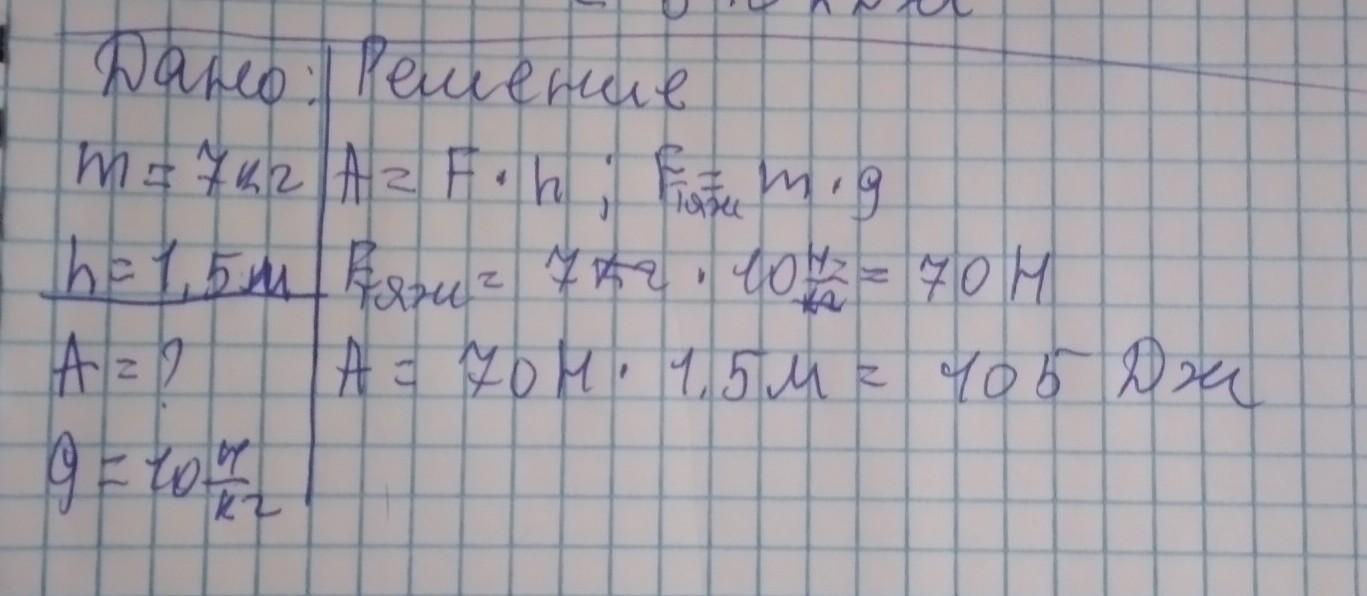 Дано: Решение
m = 7кг A = F · h ; Fтяж = m · g
h = 1,5м Fтяж = 7кг · 10 Н/кг = 70 Н
A = ? A = 70 Н · 1,5 м = 105 Дж
g = 10 Н/кг